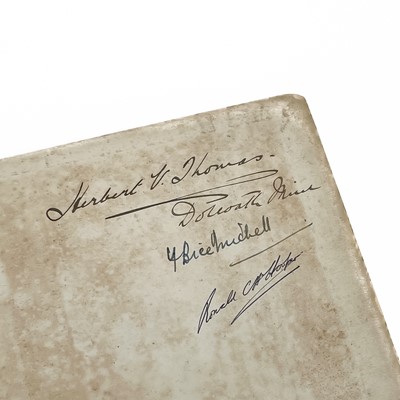 Herbert V. Thomas.
Dolcoath Mine
F Bice Michell
Ronald C W Hooper